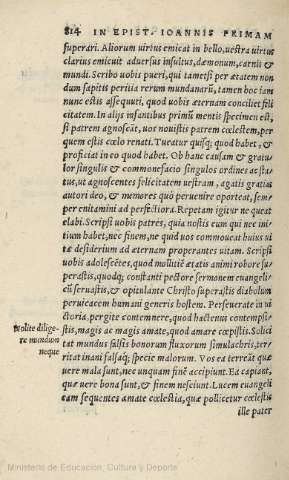 814 IN EPIST. IOANNIS PRIMAM
superari. Aliorum uirtus emicat in bello, uestra uirtus
clarius emicuit aduersus insultus, dæmonum, carnis &
mundi. Scribo uobis pueri, qui tametsi per ætatem non
dum sapitis peritia rerum mundanarũ, tamen hoc iam
nunc estis assequuti, quod uobis æternam conciliet fili
citatem. In alijs infantibus primũ mentis specimen est,
si patrem agnoscãt, uos nouistis patrem cœlestem, per
quem estis cœlo renati. Tueatur quisq; quod habet, &
proficiat in eo quod habet. Ob hanc causam & gratu
lor singulis & commonefacio singulos ordines ac sta-
tus, ut agnoscentes felicitatem uestram, agatis gratias
autori deo, & memores quò peruenire oporteat, sem-
per enitamini ad perfectiora. Repetam igitur ne queat
elabi. Scripsi uobis patres, quia nostis eum qui nec ini-
tium habet, nec finem, ne quid uos commoueat huius ui
tæ desiderium ad æternam properantes uitam. Scripsi
uobis adolescẽtes, quod mollitiẽ ætatis animi robore su-
perastis, quodq; constanti pectore sermonem euangeli-
cũ seruastis, & opitulante Christo superastis diabolum
peruicacem humani generis hostem. Perseuerate in ui-
ctoria. pergite contemnere, quod hactenus contempsi-
stis, magis ac magis amate, quod amare cœpistis. Solici
tat mundus falsis bonorum fluxorum simulachris, ter-
ritat inani falsaq; specie malorum. Vos ea terreãt quæ
uere mala sunt, nec unquam finẽ accipiunt. Ea capiant,
quæ uere bona sunt, & finem nesciunt. Lucem euangeli
cam sequentes amate cœlestia, quæ pollicetur cœlestis
ille pater
Nolite dilige-
re mundum
neque
Ministerio de Educación, Cultura y Deporte